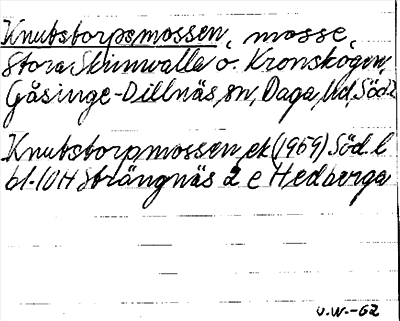 Knutstorpsmossen, mosse,
Stora Skinnvalla o. Kronskogen,
Gåsinge-Dillnäs sn, Daga hd, Södl
Knutstorpmossen ek (1959) Södl
bl. 10H Strängnäs 2 e Hedberga
U.W.-62